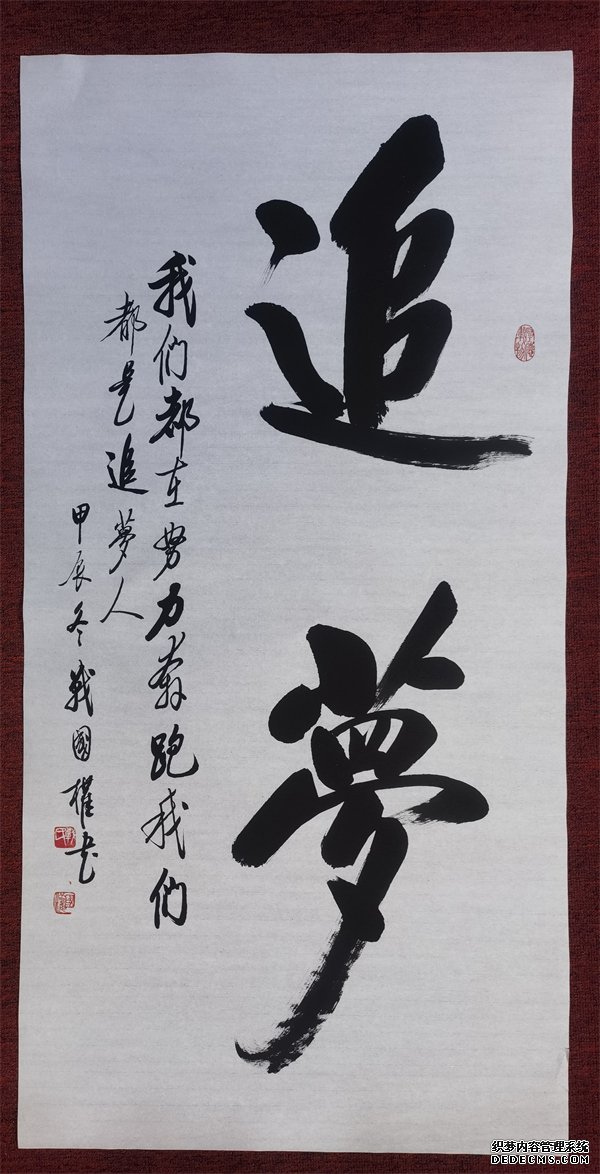 追夢
我们都在努力奔跑我们
都是追夢人
甲辰冬戰國權书
织梦内容管理系统
DEDECMS.COM